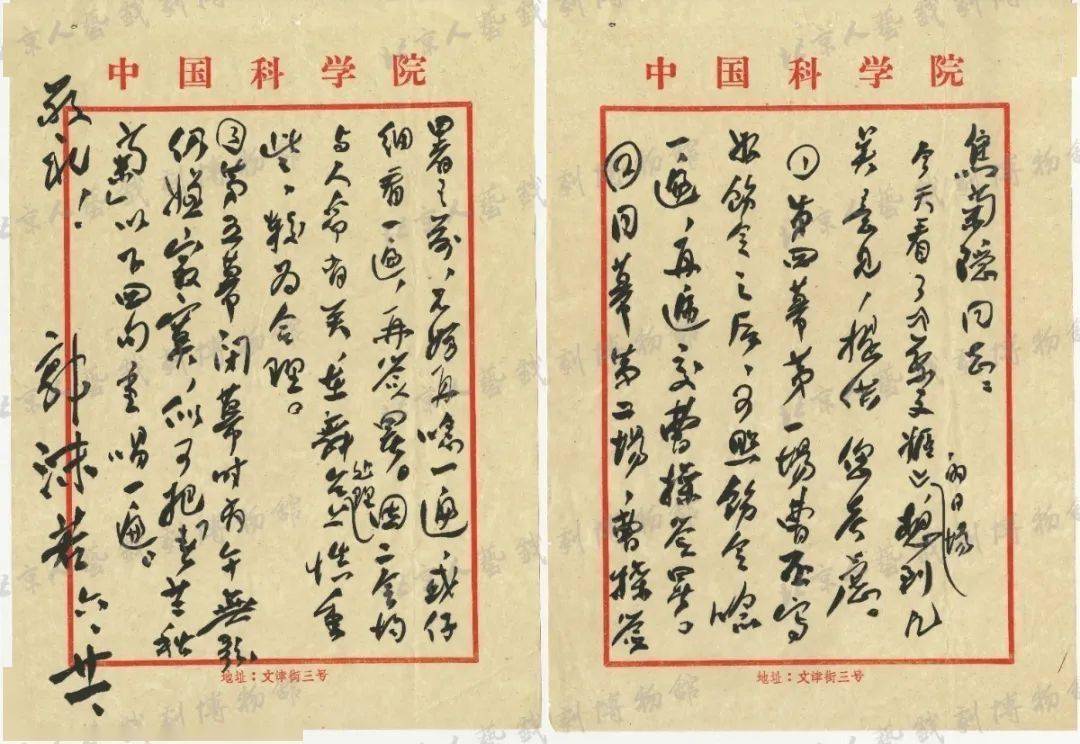 中国科学院
焦菊隐同志：
今天看了《蔡文姬》的日场，想到几
点意见，提供您考虑。
①第四幕第一场曹丕写
好饬令之后，可照饬令唸
一遍，再递交曹操签署。
②同幕第二场，曹操签
地址：文津街三号
中国科学院
署之前，不妨再唸一遍，或仔
细看一遍，再签署。因二令均
与人命有关，在舞台上处理慎重
些，较为合理。
③第五幕闭幕时有乐無歌，
仍嫌寂寞，似可把「春兰秋
菊」以下四句重唱一遍。
敬礼！
郭沫若 六、廿一、
地址：文津街三号
北京人藝戲劇博物館